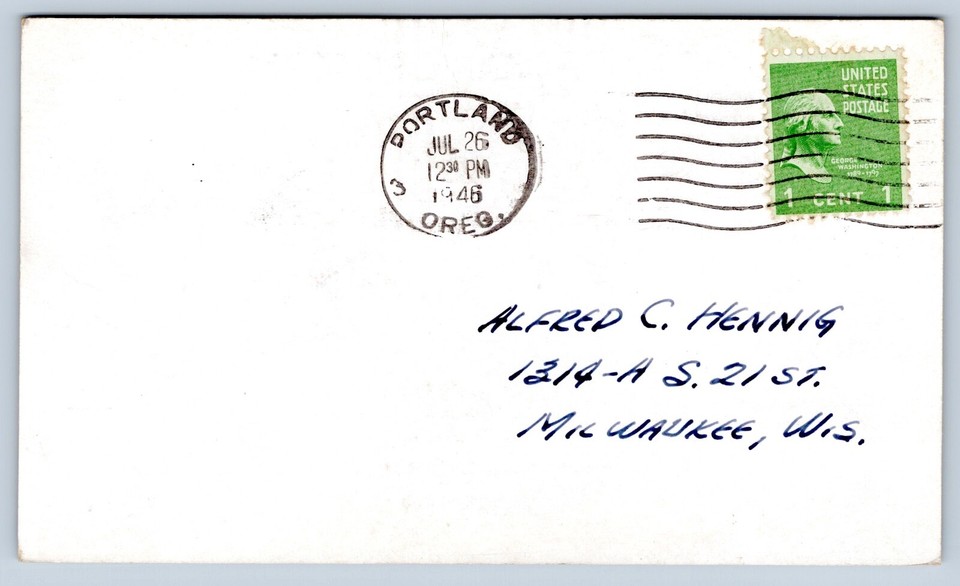 PORTLAND
JUL 26
12 30 PM
1946
3
OREG.
UNITED
STATES
POSTAGE
GEORGE
WASHINGTON
1789-1797
1 CENT 1
ALFRED C. HENNIG
1314-A S. 21 ST.
MILWAUKEE, WIS.